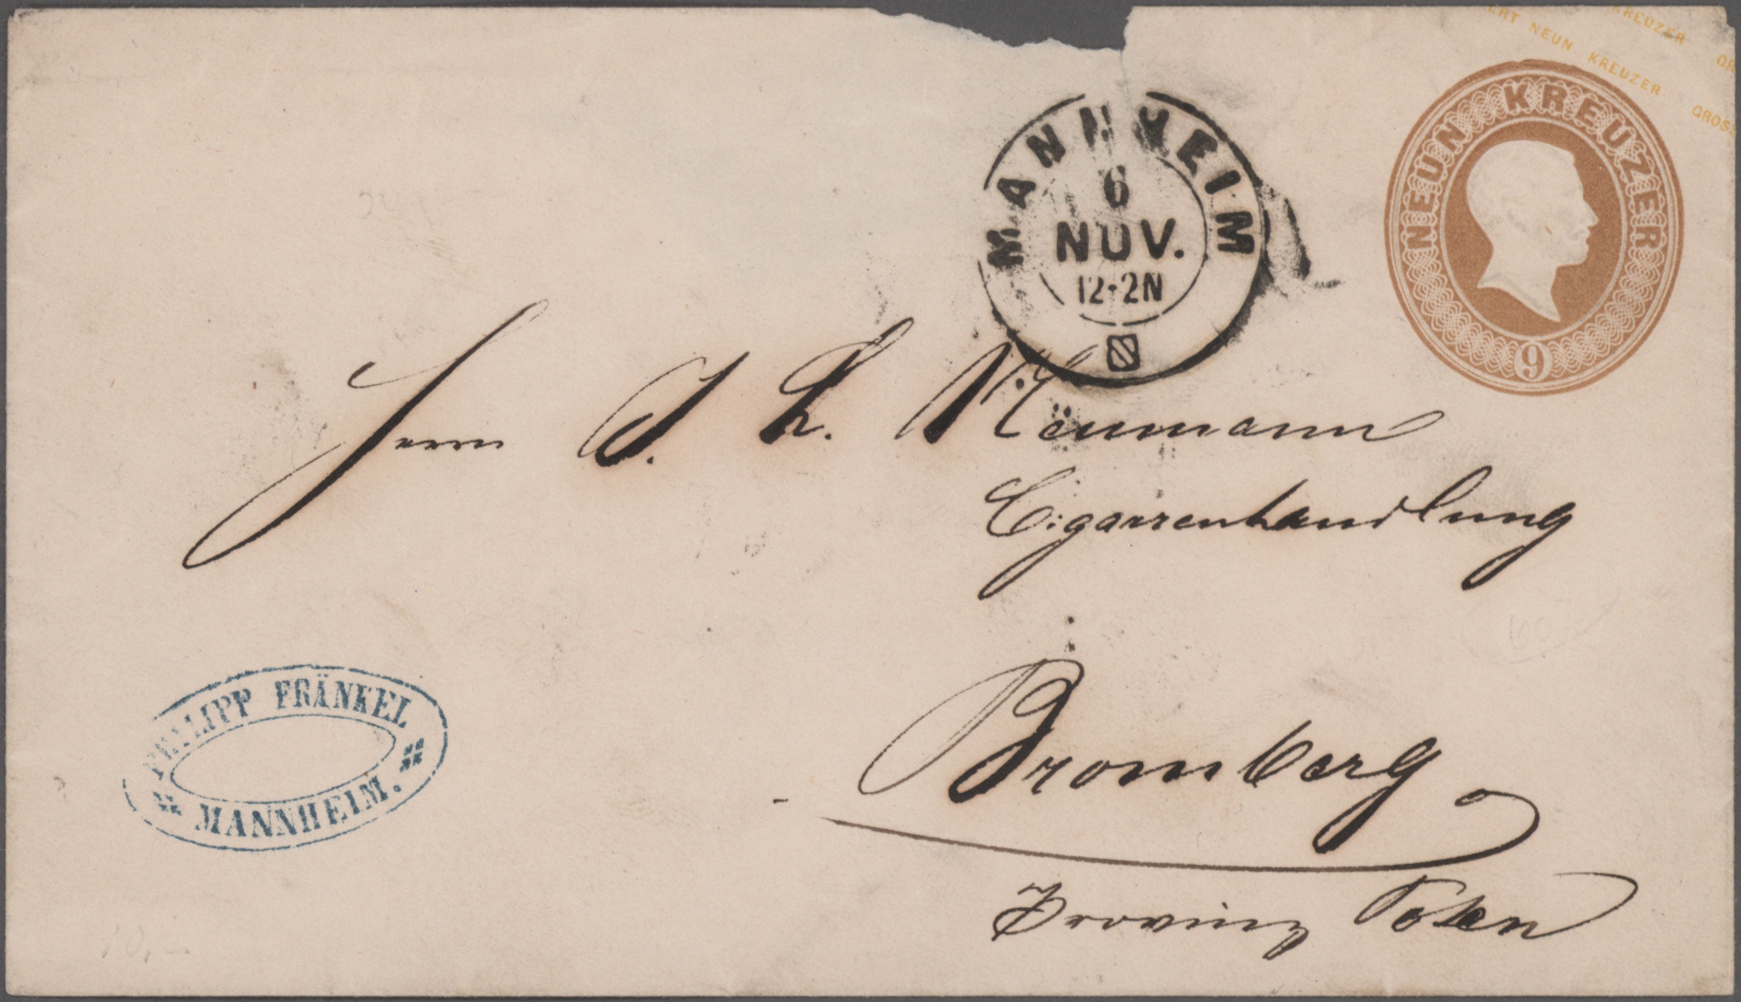 KREUZER GR
ERT NEUN KREUZER GROSS
NEUN KREUZER
9
MANNHEIM
6
NOV.
12-2N
Herrn J. L. Neumann
Cigarrenhandlung
PHILIPP FRÄNKEL
MANNHEIM.
Bromberg
Provinz Posen